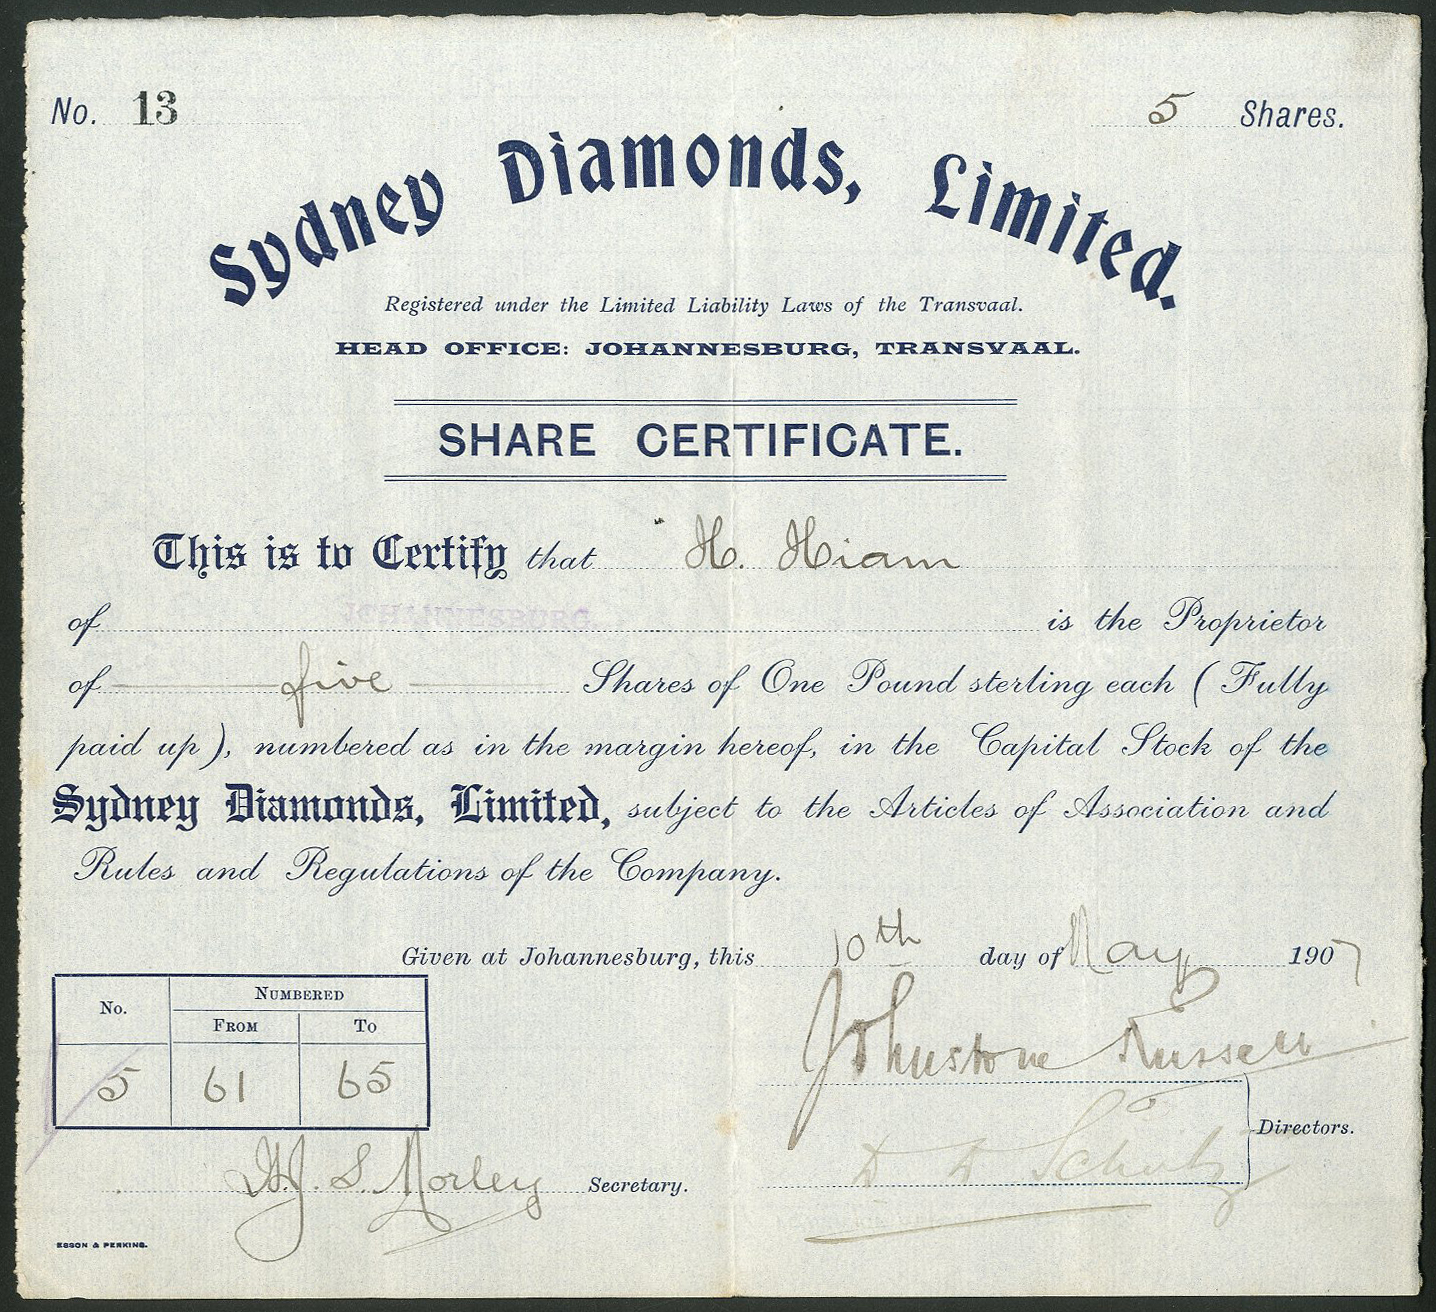 No. 13
5 Shares.
Sydney Diamonds, Limited.
Registered under the Limited Liability Laws of the Transvaal.
HEAD OFFICE: JOHANNESBURG, TRANSVAAL.
SHARE CERTIFICATE.
This is to Certify that H. Hiam
of JOHANNESBURG. is the Proprietor
of five Shares of One Pound sterling each (Fully
paid up), numbered as in the margin hereof, in the Capital Stock of the
Sydney Diamonds, Limited, subject to the Articles of Association and
Rules and Regulations of the Company.
Given at Johannesburg, this 10th day of May 1907
No. NUMBERED
FROM TO
5 61 65
Johnstone Russell
Schultz
Directors.
S. Morley Secretary.
ESSON & PERKINS.